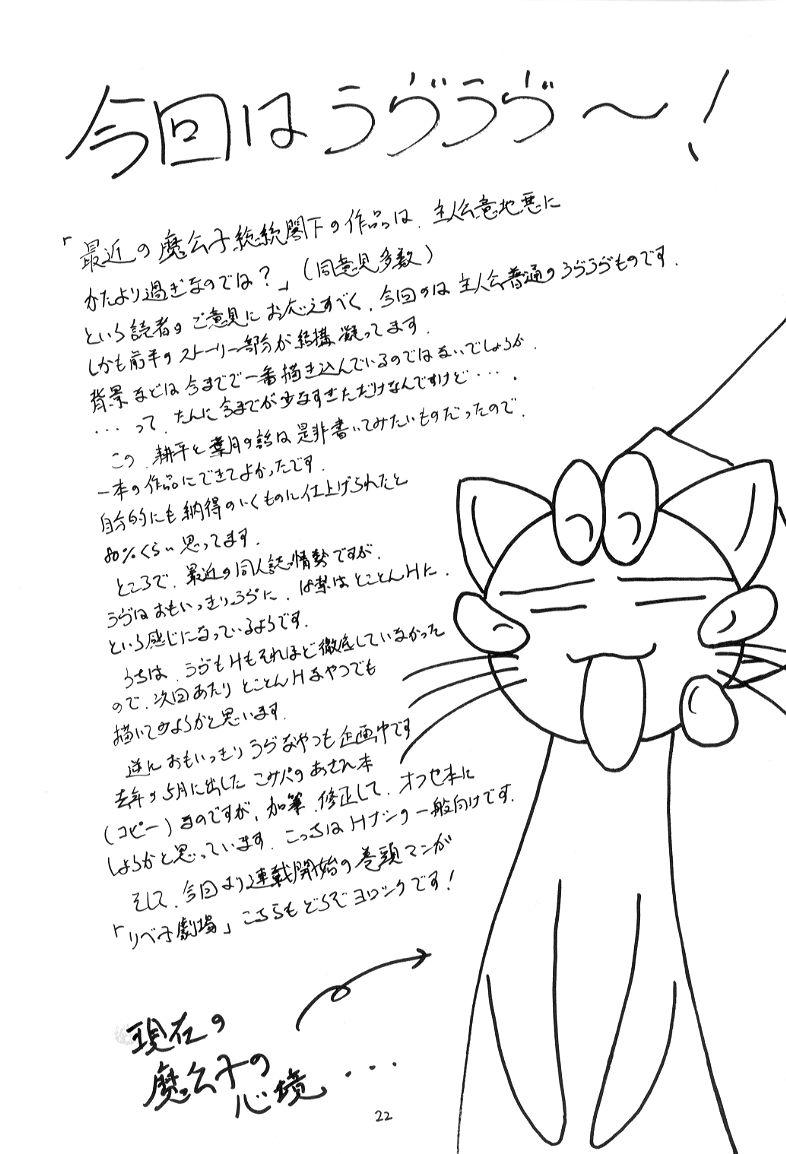 今回はうづうづ～!
「最近の魔公子総統閣下の作品は、主人公意地悪に
かたより過ぎなのでは?」(同意見多数)
という読者のご意見にお応えすべく、今回のは主人公普通のうづうづものです.
しかも前半のストーリー部分が結構凝ってます.
背景などは今までで一番描き込んでいるのではないでしょうか.
・・・って、たんに今までが少なすぎただけなんですけど・・・.
この、耕平と葉月の話は是非書いてみたいものだったので、
一本の作品にできてよかったです.
自分的にも納得のいくものに仕上げられたと
80%くらい思ってます.
ところで、最近の同人誌情勢ですが、
うづはおもいっきりうづに、はとことんHに、
という感じになっているようです.
うちは、うづもHもそれほど徹底していなかった
ので、次回あたりとことんHなやつでも
描いてみようかと思います.
逆におもいっきりうづなやつも企画中です
去年の5月に出したこみパのあさひ本
(コピー)なのですが、加筆、修正して、オフセ本に
しようかと思っています.こっちはHナシの一般向けです.
そして、今回より連載開始の巻頭マンガ
「リベ子劇場」こちらもどうぞヨロシクです!
現在の
魔公子の
心境・・・
22